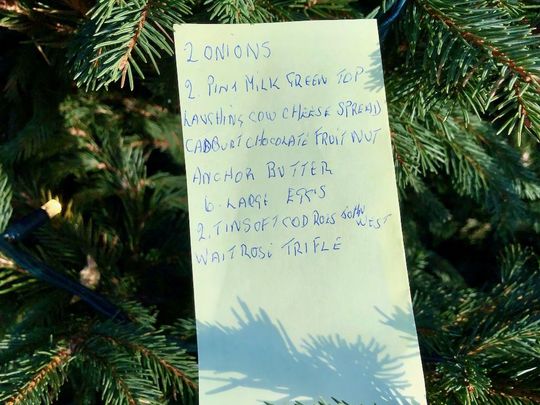 2 ONIONS
2. PINT MILK GREEN TOP
LAUGHING COW CHEESE SPREAD
CADBURY CHOCOLATE FRUIT NUT
ANCHOR BUTTER
6. LARGE EGGS
2. TINS OF COD ROES JOHN WEST
WAITROSE TRIFLE